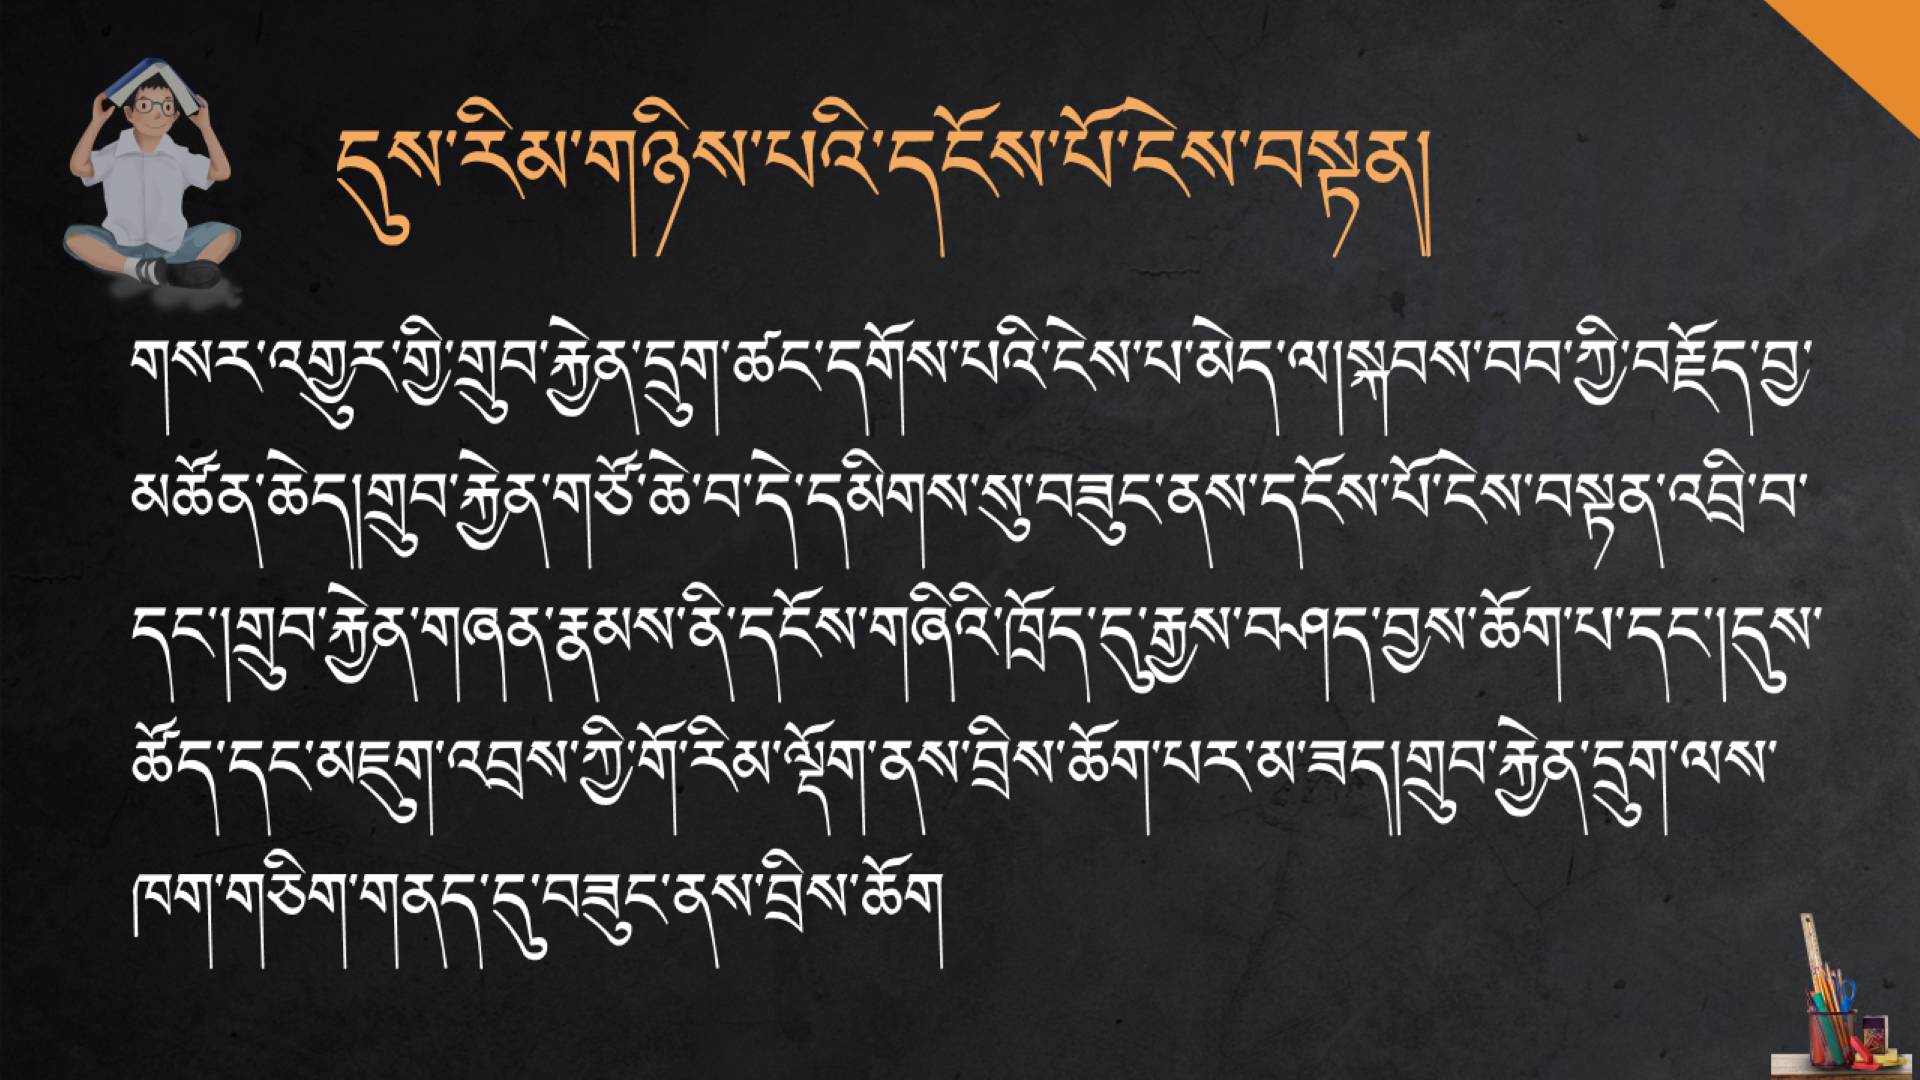 དུས་རིམ་གཉིས་པའི་དངོས་པོ་ངེས་བསྟན།
གསར་འགྱུར་གྱི་གྲུབ་རྐྱེན་དྲུག་ཚང་དགོས་པའི་ངེས་པ་མེད་ལ།སྐབས་བབ་ཀྱི་བརྗོད་བྱ་
མཚོན་ཆེད།གྲུབ་རྐྱེན་གཙོ་ཆེ་བ་དེ་དམིགས་སུ་བཟུང་ནས་དངོས་པོ་ངེས་བསྟན་འབྲི་བ་
དང་།གྲུབ་རྐྱེན་གཞན་རྣམས་ནི་དངོས་གཞིའི་ཁྲོད་དུ་རྒྱས་བཤད་བྱས་ཆོག་པ་དང་།དུས་
ཚོད་དང་མཇུག་འབྲས་ཀྱི་གོ་རིམ་ལྡོག་ནས་བྲིས་ཆོག་པར་མ་ཟད།གྲུབ་རྐྱེན་དྲུག་ལས་
ཁག་གཅིག་གནད་དུ་བཟུང་ནས་བྲིས་ཆོག